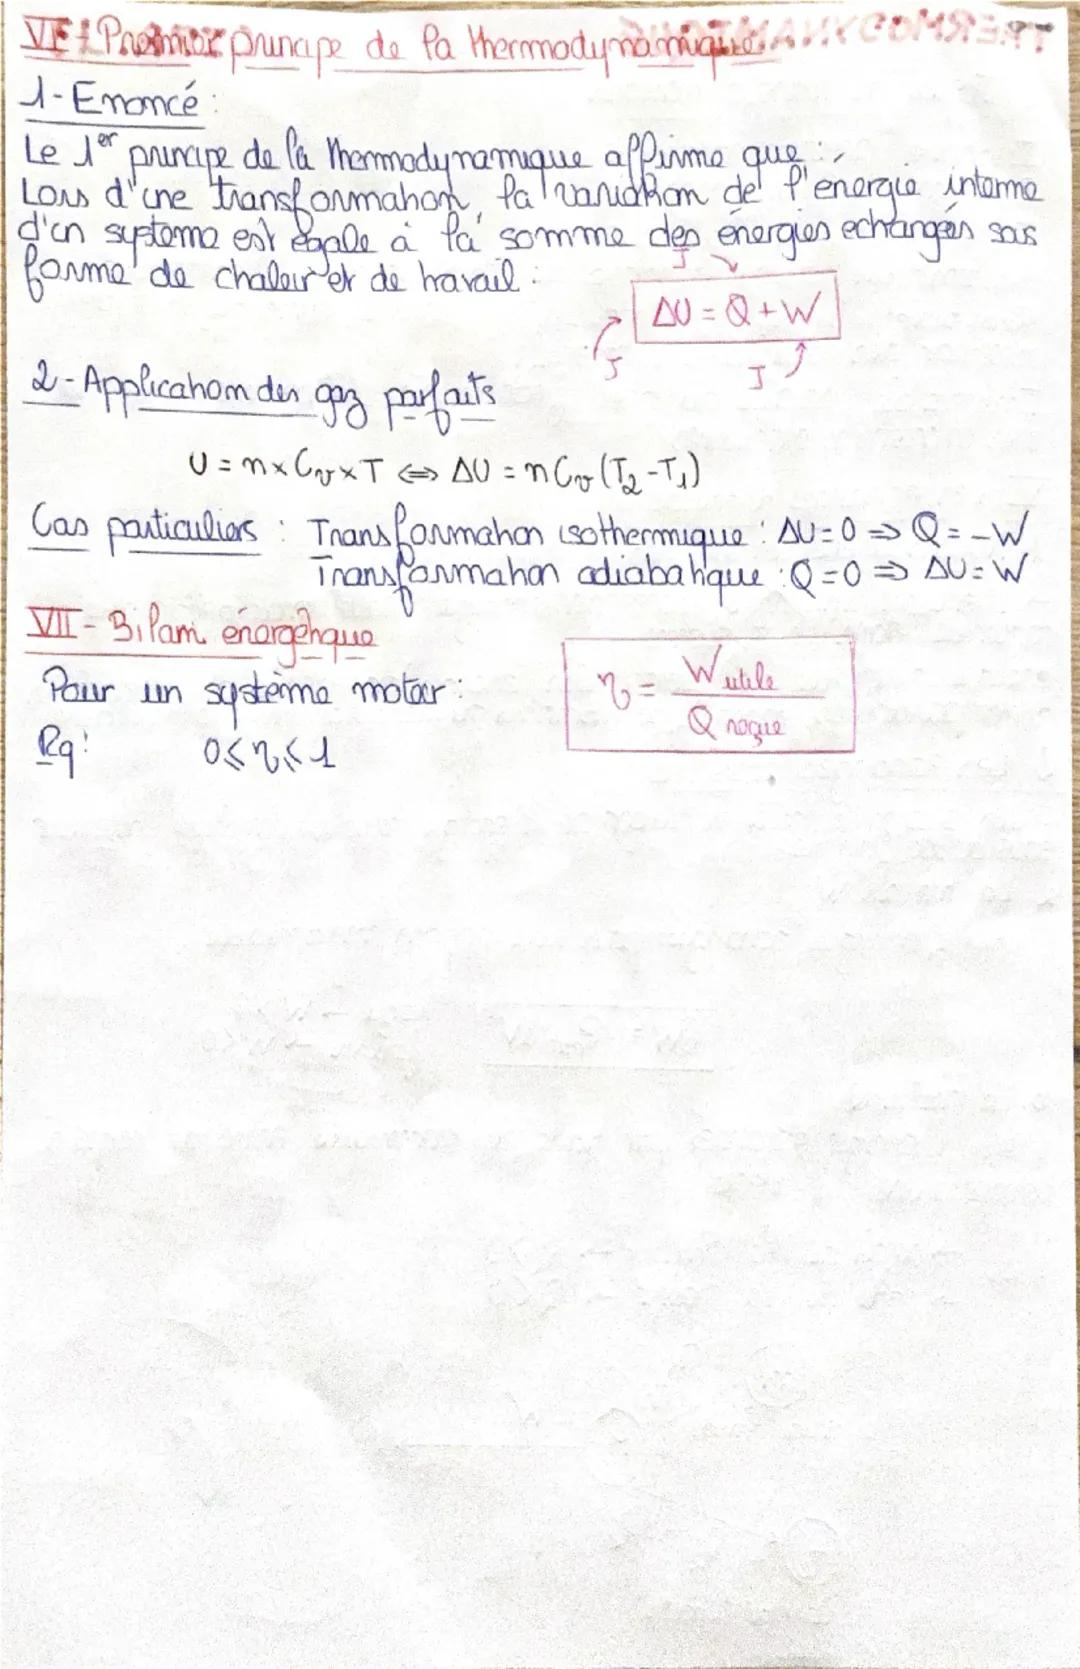 VI - Premier principe de la thermodynamique
1- Enoncé :
Le 1er principe de la thermodynamique affirme que :
Lors d'une transformation, la variation de l'énergie interne
d'un systeme est égale à la somme des énergies echangés sous
forme de chaleur et de travail :
J
ΔU = Q + W
J J
2- Application des gaz parfaits
U = n x Cv x T ⇔ ΔU = n Cv (T2 - T1)
Cas particuliers : Transformation isothermique : ΔU = 0 ⇒ Q = -W
Transformation adiabatique : Q = 0 ⇒ ΔU = W
VII - Bilan énergétique
Pour un système moteur : η = W utile / Q reçue
Rq : 0 ≤ η ≤ 1